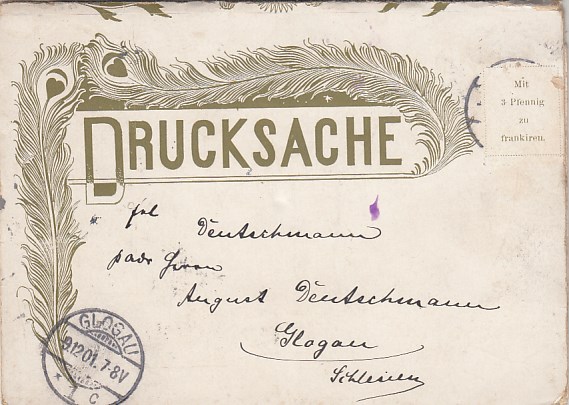 Mit
3 Pfennig
zu
frankiren.
DRUCKSACHE
frl Deutschmann
padr Herrn
August Deutschmann
Glogau
Schlesien
GLOGAU
9.12.01.7-8V
* 1 c